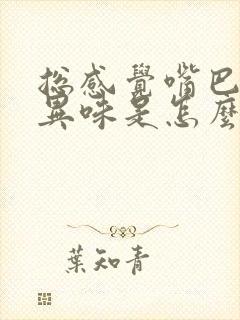 總感覺嘴巴
異味是怎麼
葉知青